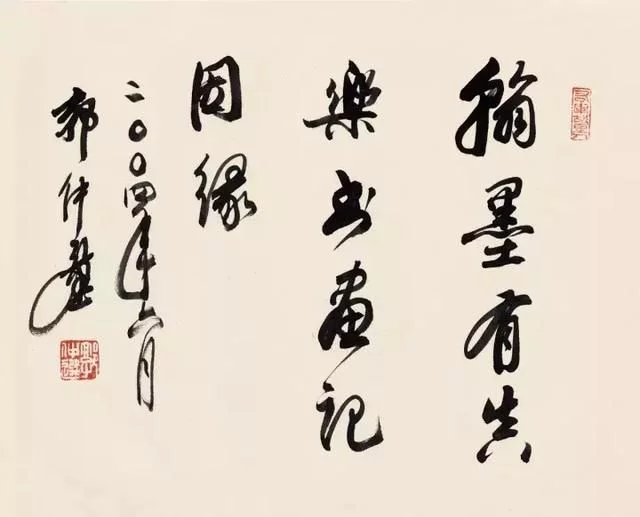 翰墨有真
樂書畫記
因緣
二〇〇四年六月
郭仲選